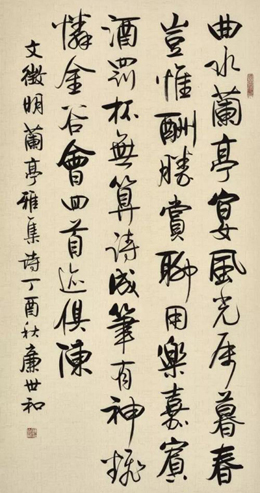 曲水蘭亭宴風光屬暮春
豈惟酬勝賞聊用樂嘉賓
酒罰杯無算詩成筆有神翻
憐金谷會回首迹俱陳
文徵明蘭亭雅集詩丁酉秋廉世和